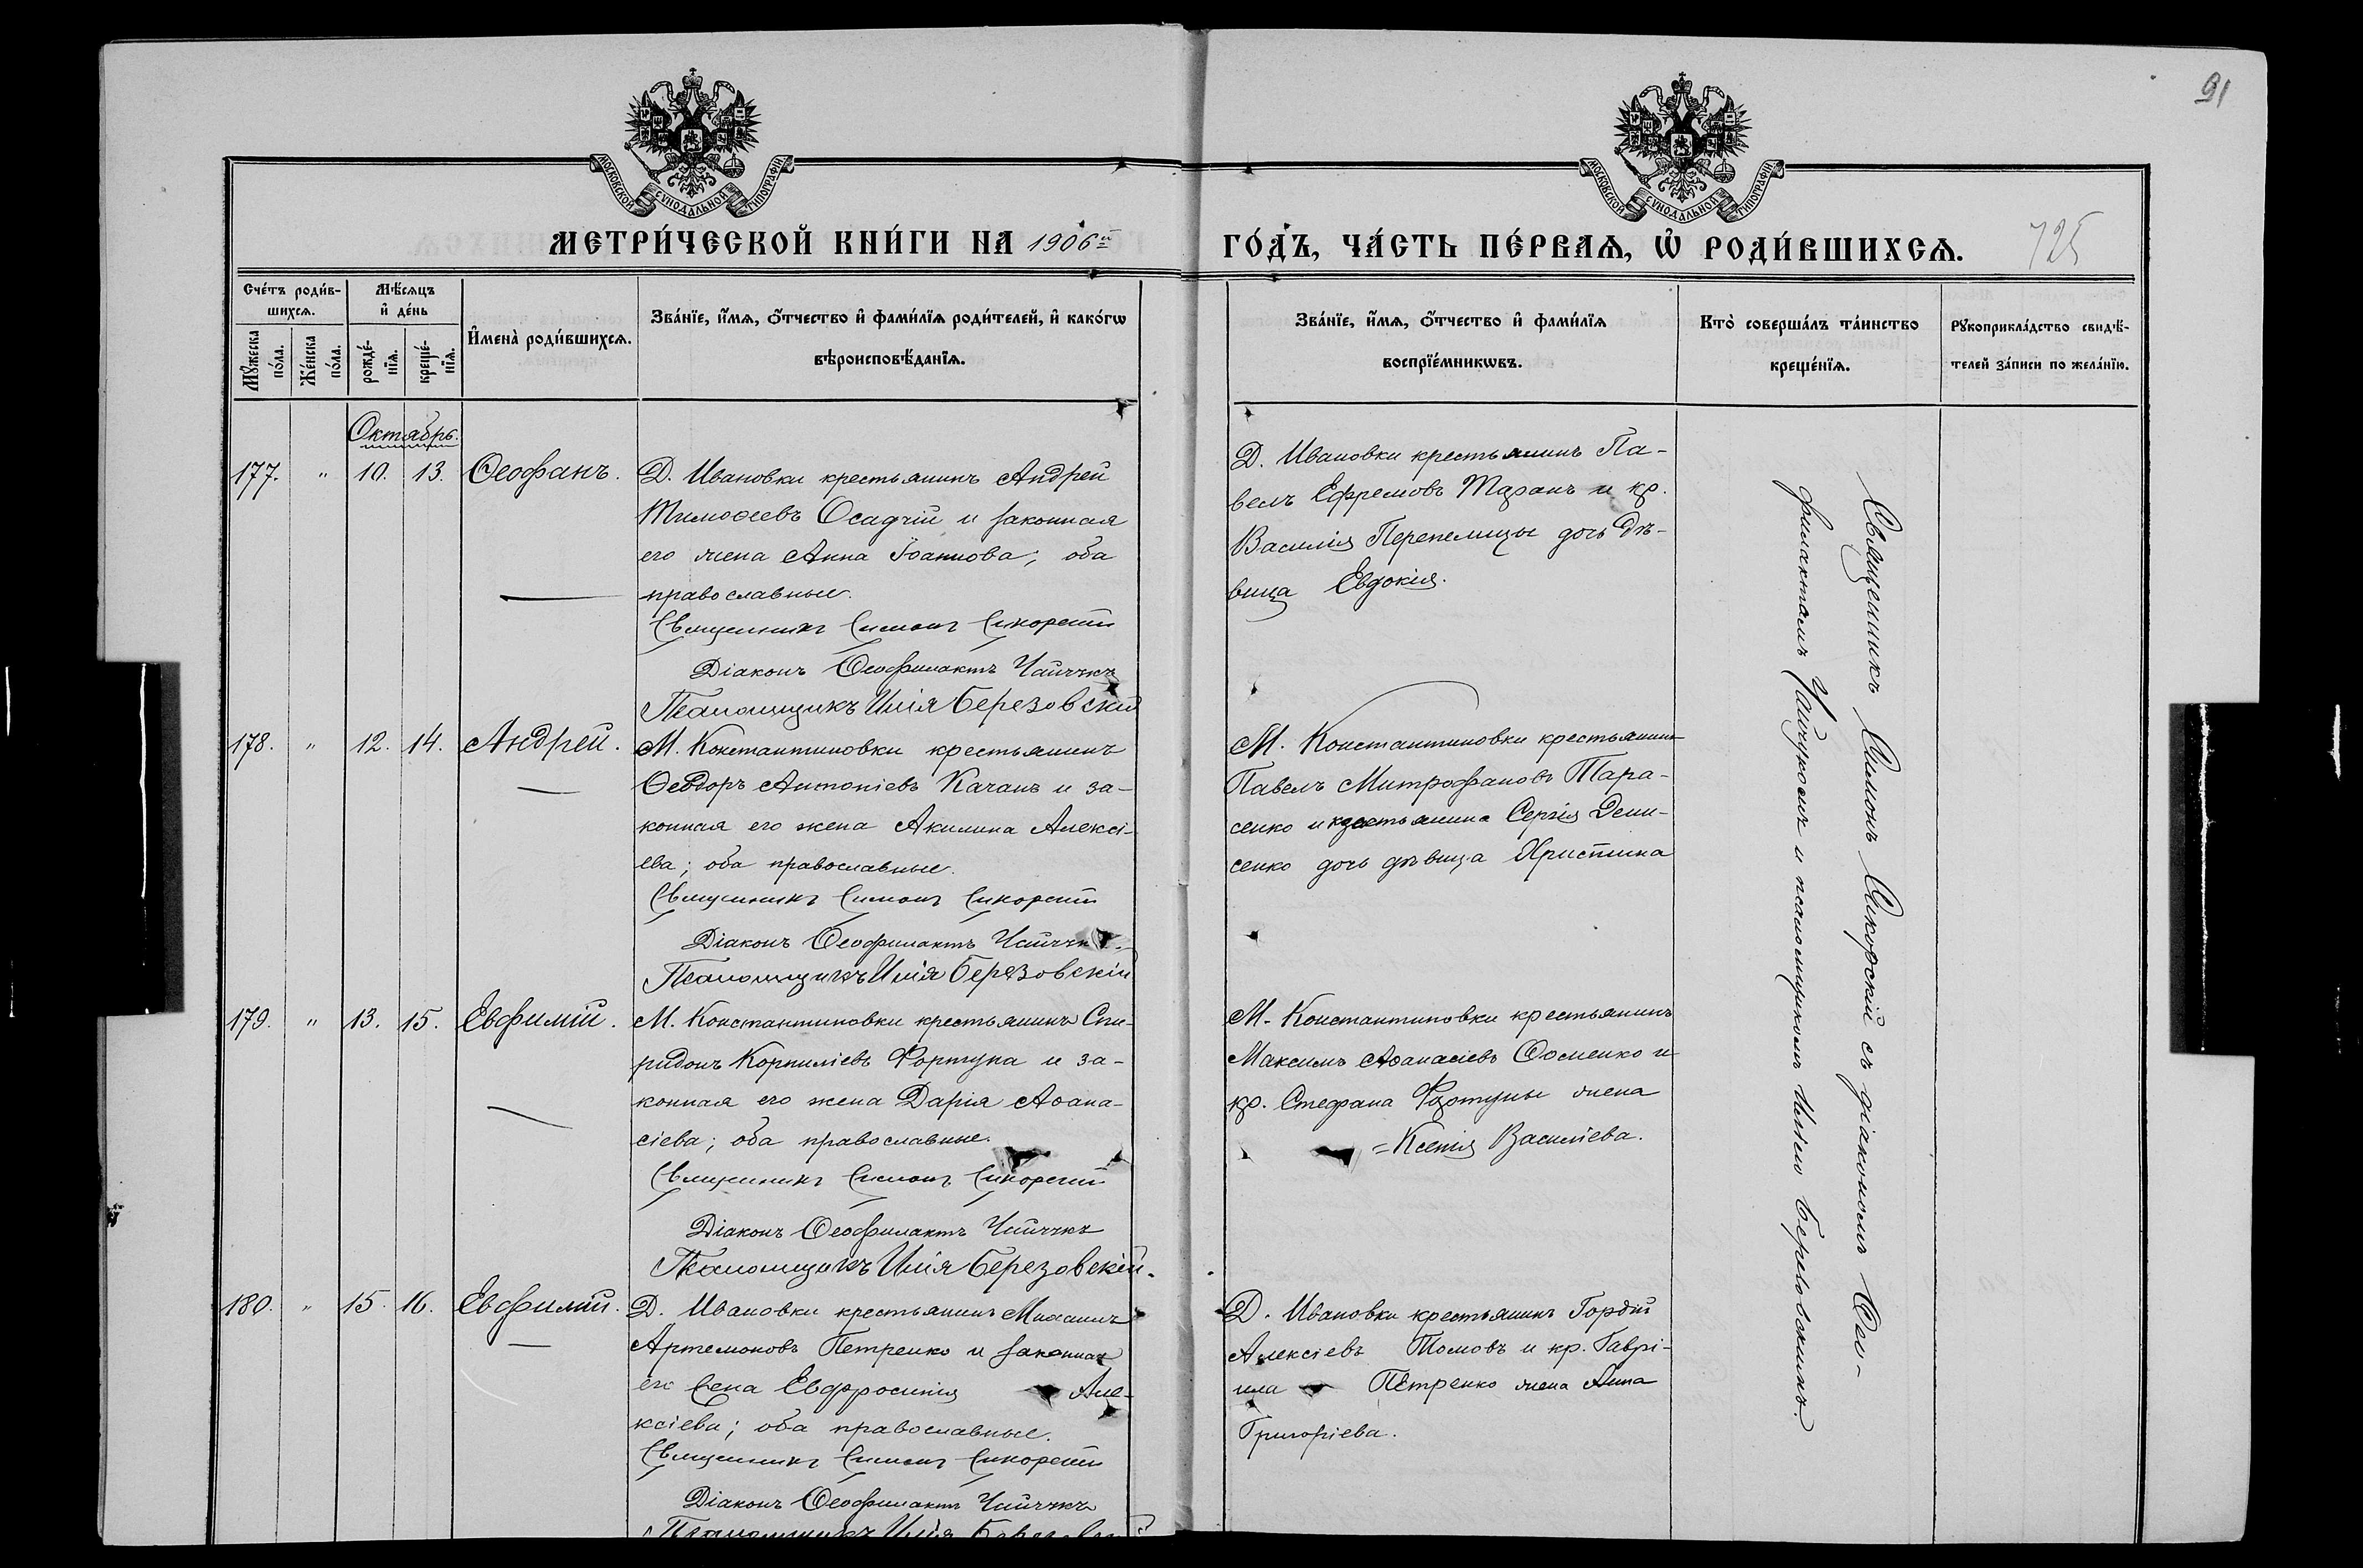 91
МОСКОВСКОЙ СУНОДАЛЬНОЙ ТИПОГРАФІИ
МОСКОВСКОЙ СУНОДАЛЬНОЙ ТИПОГРАФІИ
МЕТРИ́ЧЕСКОЙ КНИ́ГИ НА 1906й
ГО́ДЪ, ЧА́СТЬ ПЕ́РВАѦ, Ѡ҆ РОДИ́ВШИХСѦ.
725
Сче́тъ роди́в-
шихсѧ.
Мѣ́сѧцъ
и҆ де́нь
Мꙋ́жеска
по́ла.
Же́нска
по́ла.
рожде́-
нїѧ.
креще́-
нїѧ.
И҆мена̀ роди́вшихсѧ.
Зва́нїе, и҆́мѧ, ѻ҆́тчество и҆ фами́лїѧ роди́телей, и҆ како́гѡ
вѣроисповѣ́данїѧ.
Зва́нїе, и҆́мѧ, ѻ҆́тчество и҆ фами́лїѧ
воспрїе́мникѡвъ.
Кто̀ соверша́лъ та́инство
креще́нїѧ.
Рꙋкоприкла́дство свидѣ́-
телей за́писи по жела́нїю.
Октябрь.
177. " 10. 13. Ѳеофанъ.
Д. Ивановки крестьянинъ Андрей
Тимоѳеевъ Осадчій и законная
его жена Анна Іоаннова; оба
православные.
Священникъ Симонъ Сикорскій
Діаконъ Ѳеофилактъ Чайчукъ
Псаломщикъ Илія Березовскій
Д. Ивановки крестьянинъ Па-
велъ Ефремовъ Таранъ и кр.
Василія Перепелицы дочь дѣ-
вица Евдокія.
178. " 12. 14. Андрей.
М. Константиновки крестьянинъ
Ѳеодоръ Антоніевъ Качанъ и за-
конная его жена Акилина Алексі-
ева; оба православные.
Священникъ Симонъ Сикорскій
Діаконъ Ѳеофилактъ
Псаломщикъ Илія Березовскій
М. Константиновки крестьянинъ
Павелъ Митрофановъ Тара-
сенко и крестьянина Сергія Дени-
сенко дочь дѣвица Христина
179. " 13. 15. Евфимій.
М. Константиновки крестьянинъ Спи-
ридонъ Корниліевъ Фортуна и за-
конная его жена Дарія Аѳана-
сіева; оба православные.
Священникъ Симонъ Сикорскій
Діаконъ Ѳеофилактъ Чайчукъ
Псаломщикъ Илія Березовскій.
М. Константиновки крестьянинъ
Максимъ Аѳанасіевъ Ѳоменко и
кр. Стефана Фортуны жена
=Ксенія Василіева.
180. " 15. 16. Евфимій.
Д. Ивановки крестьянинъ Михаилъ
Артемоновъ Петренко и законная
его жена Евфросинія Але-
ксіева; оба православные.
Священникъ Симонъ Сикорскій
Діаконъ Ѳеофилактъ Чайчукъ
Псаломщикъ Илія
Д. Ивановки крестьянинъ Гордій
Алексіевъ Томовъ и кр. Гаврі-
ила Петренко жена Анна
Григоріева.
Священникъ Симонъ Сикорскій съ діакономъ Ѳео-
филактомъ Чайчукомъ и псаломщикомъ Иліею Березовскимъ.